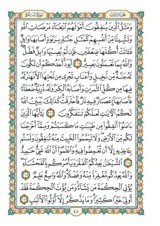 وَمَثَلُ ٱلَّذِينَ يُنفِقُونَ أَمْوَٰلَهُمُ ٱبْتِغَآءَ مَرْضَاتِ ٱللَّهِ
وَتَثْبِيتًا مِّنْ أَنفُسِهِمْ كَمَثَلِ جَنَّةٍۭ بِرَبْوَةٍ أَصَابَهَا وَابِلٌ
فَـَٔاتَتْ أُكُلَهَا ضِعْفَيْنِ فَإِن لَّمْ يُصِبْهَا وَابِلٌ فَطَلٌّ
وَٱللَّهُ بِمَا تَعْمَلُونَ بَصِيرٌ أَيَوَدُّ أَحَدُكُمْ أَن تَكُونَ
لَهُۥ جَنَّةٌ مِّن نَّخِيلٍ وَأَعْنَابٍ تَجْرِى مِن تَحْتِهَا ٱلْأَنْهَٰرُ لَهُۥ
فِيهَا مِن كُلِّ ٱلثَّمَرَٰتِ وَأَصَابَهُ ٱلْكِبَرُ وَلَهُۥ ذُرِّيَّةٌ ضُعَفَآءُ
فَأَصَابَهَآ إِعْصَارٌ فِيهِ نَارٌ فَٱحْتَرَقَتْ كَذَٰلِكَ يُبَيِّنُ ٱللَّهُ
لَكُمُ ٱلْـَٔايَٰتِ لَعَلَّكُمْ تَتَفَكَّرُونَ يَٰٓأَيُّهَا ٱلَّذِينَ
ءَامَنُوٓا۟ أَنفِقُوا۟ مِن طَيِّبَٰتِ مَا كَسَبْتُمْ وَمِمَّآ أَخْرَجْنَا
لَكُم مِّنَ ٱلْأَرْضِ وَلَا تَيَمَّمُوا۟ ٱلْخَبِيثَ مِنْهُ تُنفِقُونَ
وَلَسْتُم بِـَٔاخِذِيهِ إِلَّآ أَن تُغْمِضُوا۟ فِيهِ وَٱعْلَمُوٓا۟ أَنَّ ٱللَّهَ غَنِىٌّ حَمِيدٌ
ٱلشَّيْطَٰنُ يَعِدُكُمُ ٱلْفَقْرَ وَيَأْمُرُكُم بِٱلْفَحْشَآءِ
وَٱللَّهُ يَعِدُكُم مَّغْفِرَةً مِّنْهُ وَفَضْلًا وَٱللَّهُ وَٰسِعٌ عَلِيمٌ
يُؤْتِى ٱلْحِكْمَةَ مَن يَشَآءُ وَمَن يُؤْتَ ٱلْحِكْمَةَ فَقَدْ
أُوتِىَ خَيْرًا كَثِيرًا وَمَا يَذَّكَّرُ إِلَّآ أُو۟لُوا۟ ٱلْأَلْبَٰبِ
٤٥